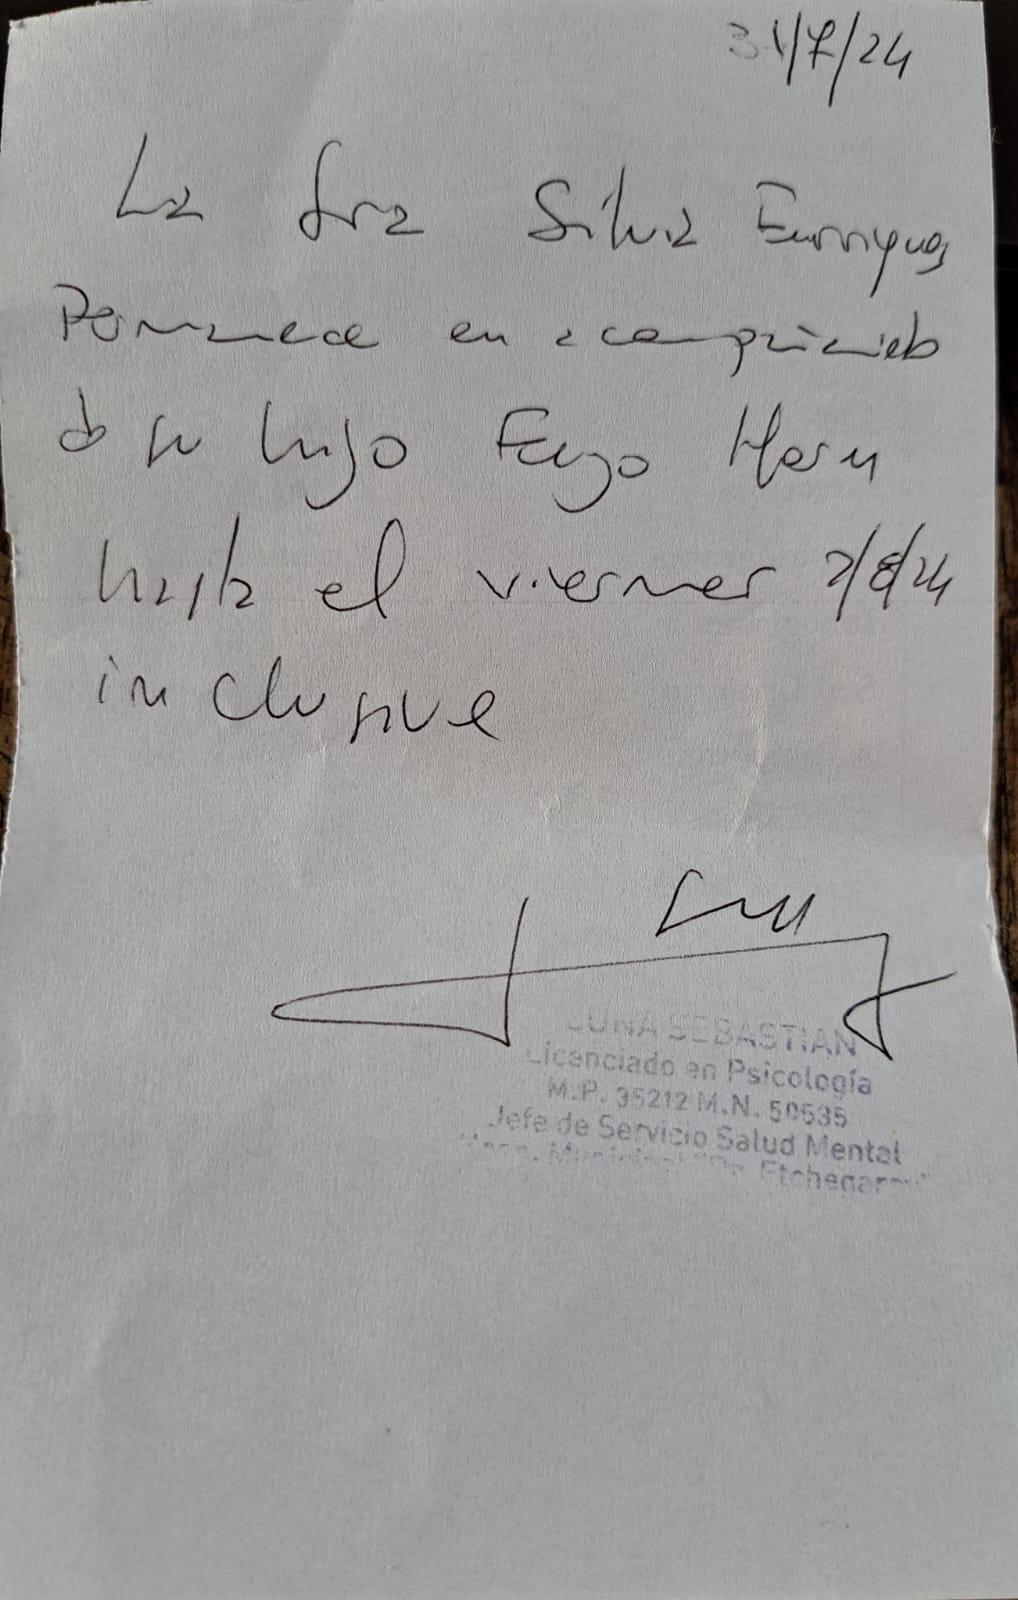 31/7/24
La Sra Silvia Enrriquez
Permanece en acompañamiento
de su hijo
hasta el viernes 2/8/24
inclusive
LUNA SEBASTIAN
Licenciado en Psicología
M.P. 35212 M.N. 50535
Jefe de Servicio Salud Mental